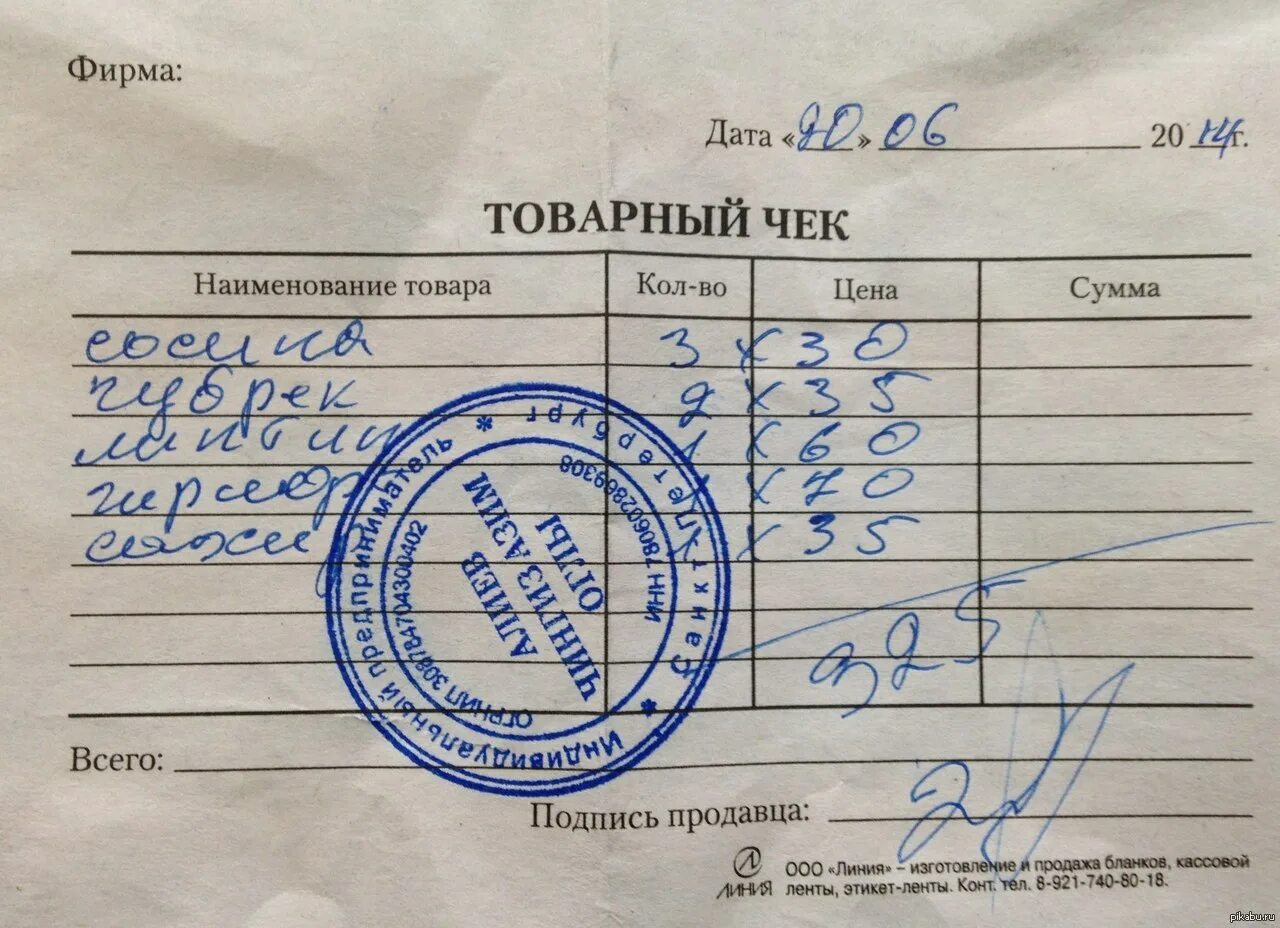 Фирма:
Дата «20» 06 2014г.
ТОВАРНЫЙ ЧЕК
Наименование товара Кол-во Цена Сумма
сосика 3 х 30
чубрек 2 х 35
липтин 1 х 60
х 70
х 35
325
Индивидуальный предприниматель * Санкт-Петербург *
ОГРНИП 308784704300402
ИНН 780602869308
АЛИЕВ
ЧИНГИЗ АЗИМ
ОГЛЫ
Всего:
Подпись продавца:
ЛИНИЯ
ООО «Линия» – изготовление и продажа бланков, кассовой
ленты, этикет-ленты. Конт. тел. 8-921-740-80-18.
pikabu.ru